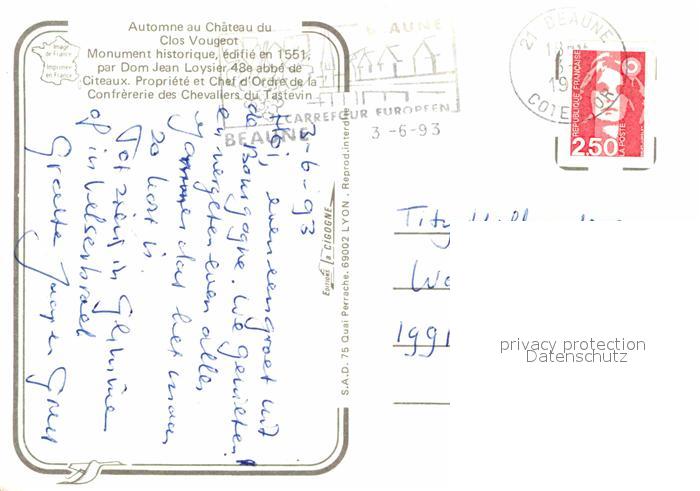 Automne au Château du
Clos Vougeot
Monument historique, édifié en 1551,
par Dom Jean Loysier 48e abbé de
Citeaux. Propriété et Chef d'Ordre de la
Confrèrerie des Chevaliers du Tastevin
Image
de France
Imprimé
en France
BEAUNE
CARREFOUR EUROPEEN
BEAUNE
3 -6-93
21 BEAUNE
COTE D'OR
REPUBLIQUE FRANÇAISE
LA POSTE
2,50
3-6-93
Hoi, even een groet uit
de Bourgogne. We genieten
en vergeten even alles.
Jammer dat het maar
zo kort is.
Tot ziens in
of in
Groetjes
Editions la CIGOGNE
S.A.D. 75 Quai Perrache, 69002 LYON. Reprod. interdite
1991
privacy protection
Datenschutz